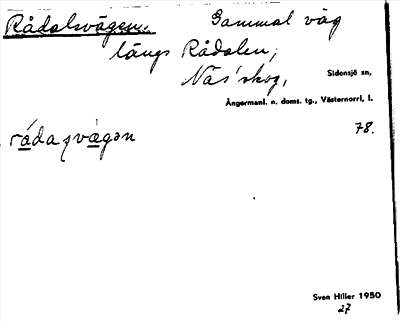 Rådalsvägen. Gammal väg
längs Rådalen,
Näs' skog, Sidensjö sn,
Ångermanl. n. doms. tg., Västernorrl, l.
78.
Sven Hiller 1950
27